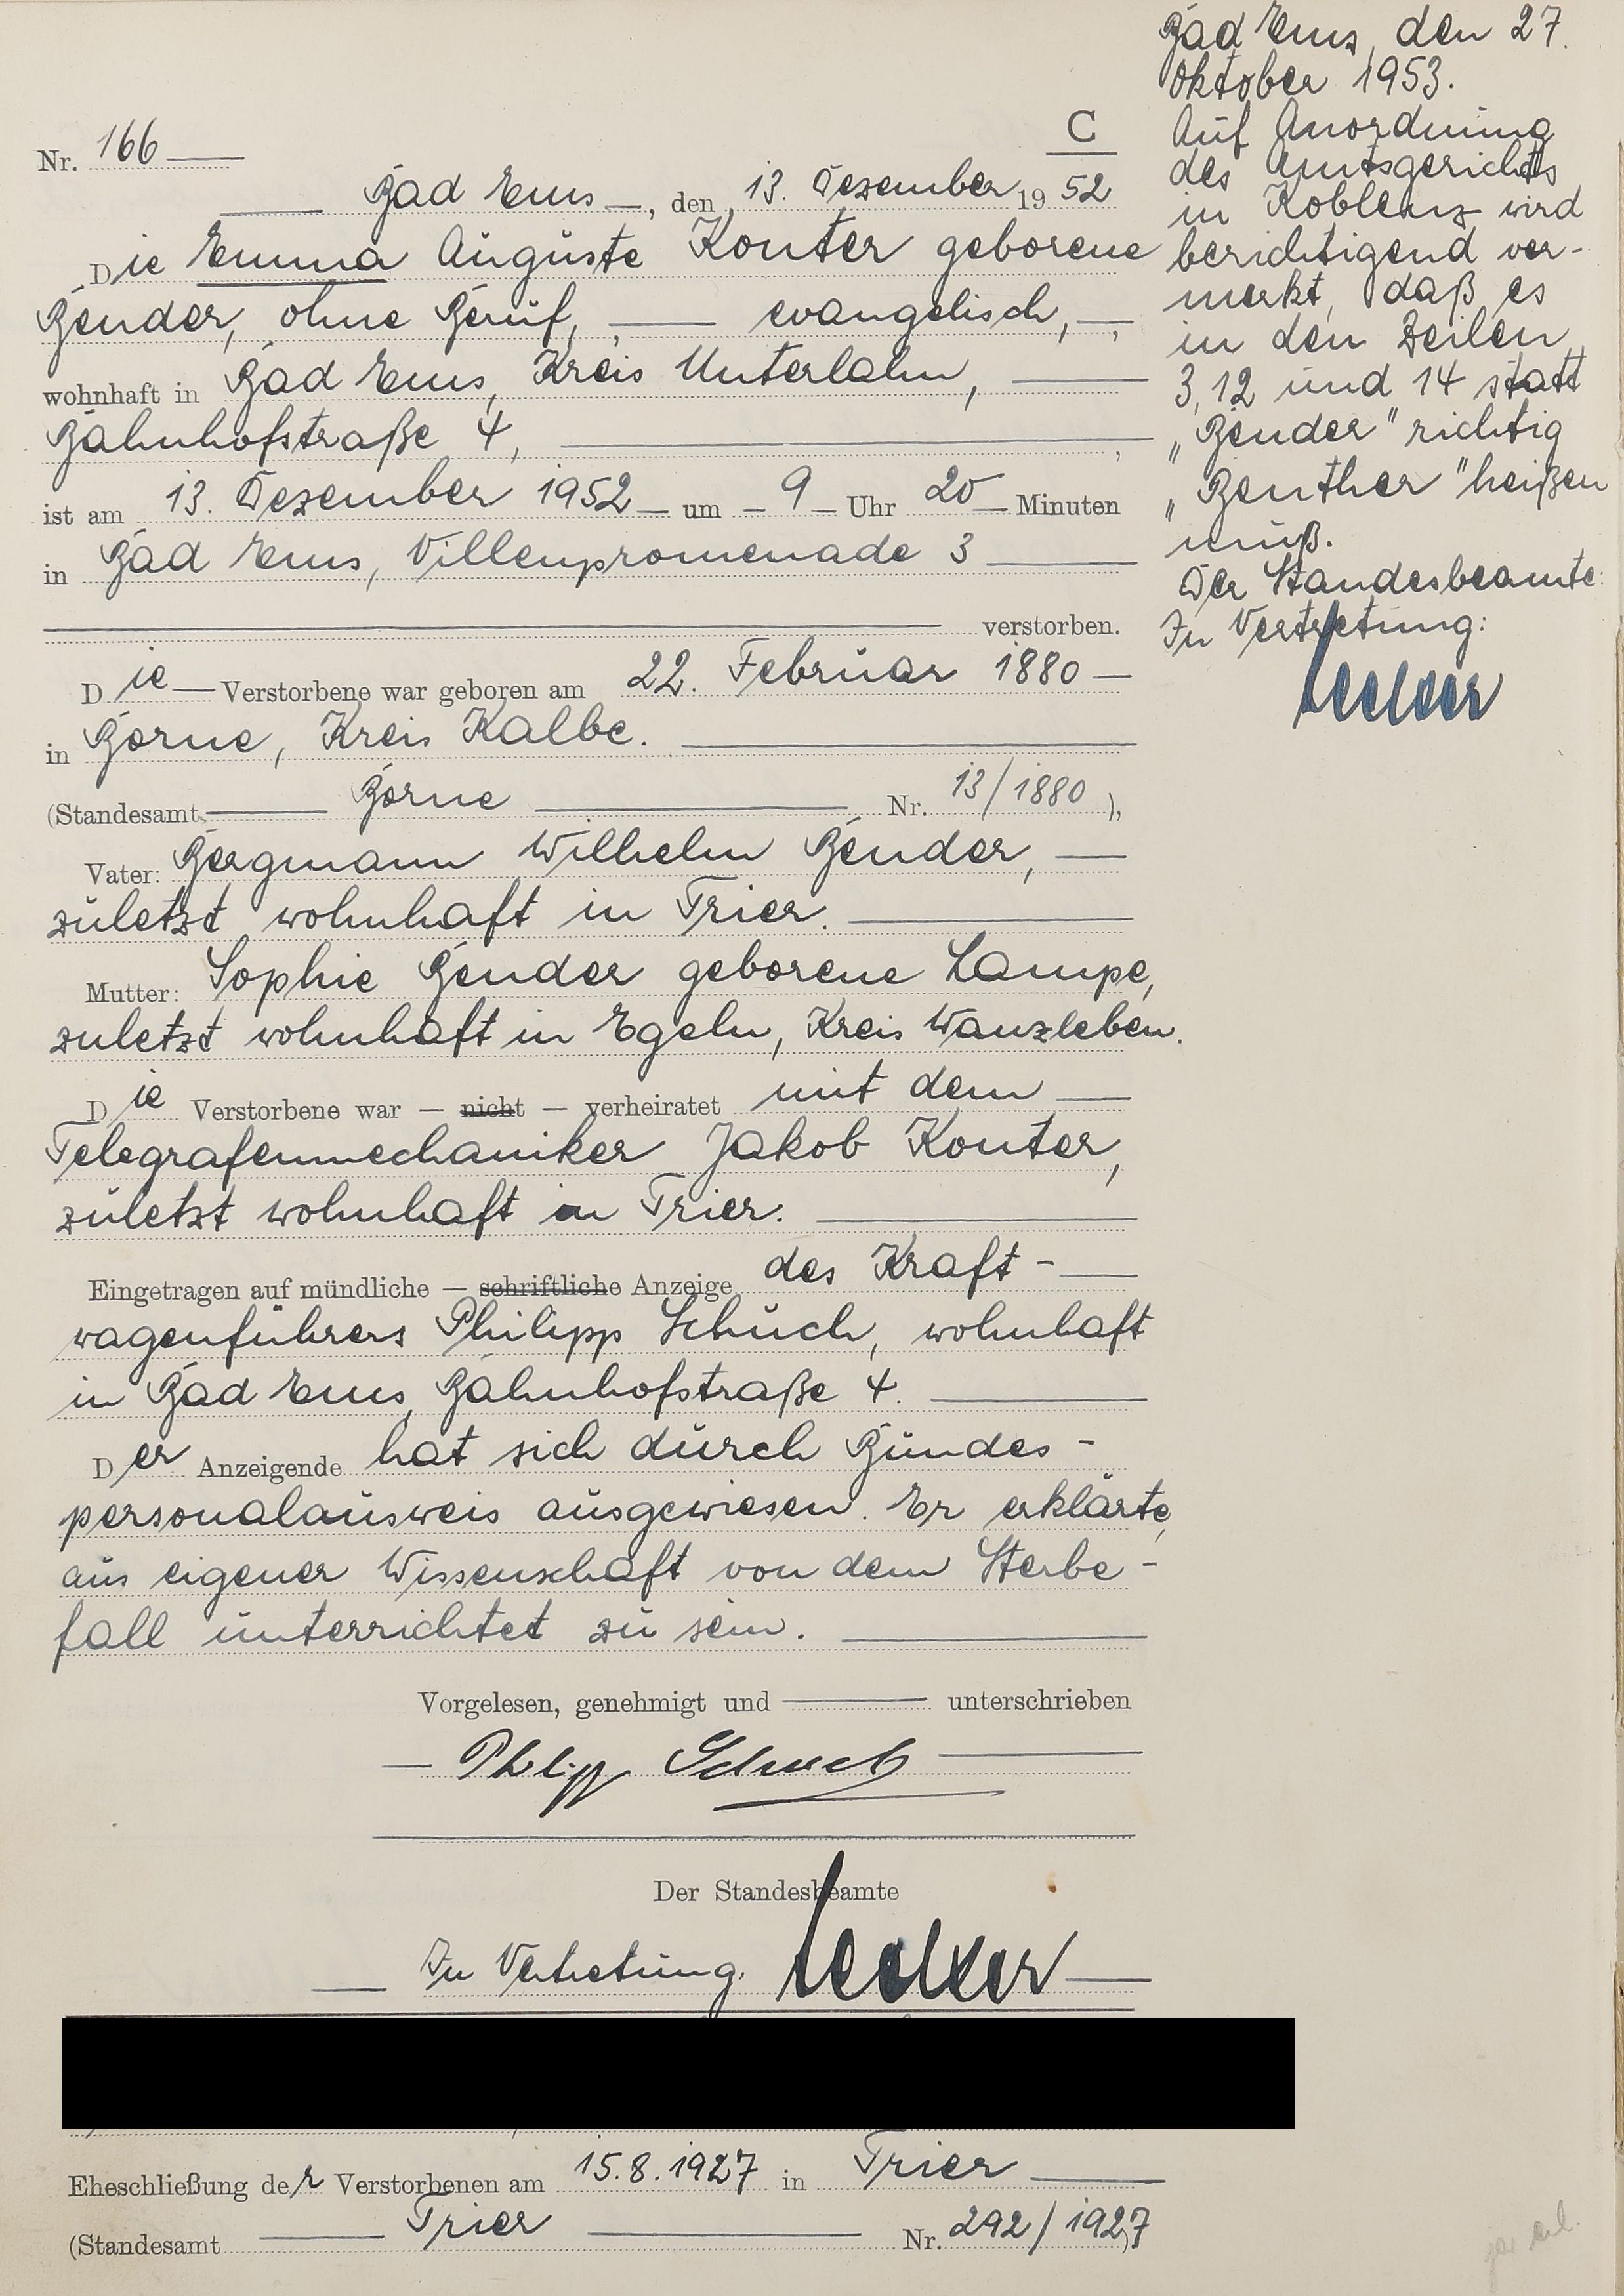 C
Nr. 166
Bad Ems, den 13. Dezember 1952
Die Emma Auguste Konter geborene
Bender, ohne Beruf, evangelisch,
wohnhaft in Bad Ems, Kreis Unterlahn,
Bahnhofstraße 4,
ist am 13. Dezember 1952 um 9 Uhr 20 Minuten
in Bad Ems, Villenpromenade 3
verstorben.
Die Verstorbene war geboren am 22. Februar 1880
in Borne, Kreis Kalbe.
(Standesamt Borne Nr. 13/1880),
Vater: Bergmann Wilhelm Bender,
zuletzt wohnhaft in Trier.
Mutter: Sophie Bender geborene Lampe,
zuletzt wohnhaft in Egeln, Kreis Wanzleben.
Die Verstorbene war — nicht — verheiratet mit dem
Telegrafenmechaniker Jakob Konter,
zuletzt wohnhaft in Trier.
Eingetragen auf mündliche — schriftliche Anzeige des Kraft-
wagenführers Philipp Schuch, wohnhaft
in Bad Ems, Bahnhofstraße 4.
Der Anzeigende hat sich durch Bundes-
personalausweis ausgewiesen. Er erklärte,
aus eigener Wissenschaft von dem Sterbe-
fall unterrichtet zu sein.
Vorgelesen, genehmigt und unterschrieben
Philipp Schuch
Der Standesbeamte
In Vertretung:
Eheschließung der Verstorbenen am 15.8.1927 in Trier
(Standesamt Trier Nr. 292/1927)
Bad Ems, den 27.
Oktober 1953.
Auf Anordnung
des Amtsgerichts
in Koblenz wird
berichtigend ver-
merkt, daß es
in den Zeilen
3, 12 und 14 statt
„Bender" richtig
„Benther" heißen
muß.
Der Standesbeamte:
In Vertretung: